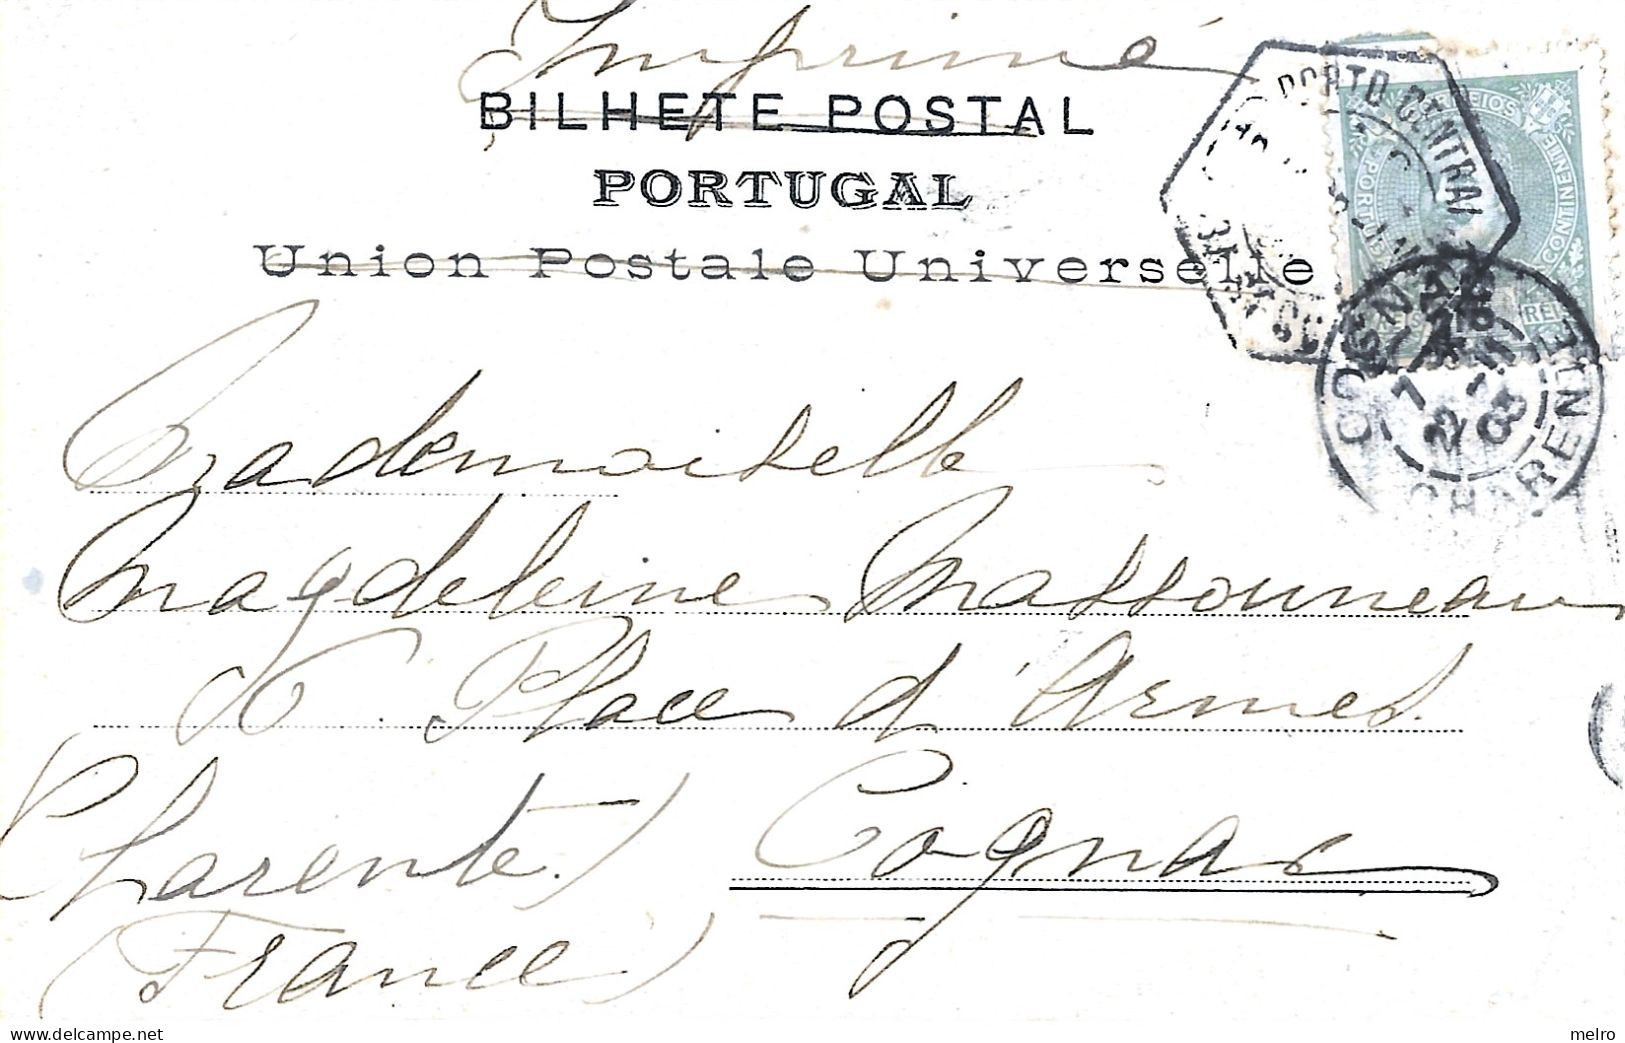 Imprimé
BILHETE POSTAL
PORTUGAL
Union Postale Universelle
PORTO CENTRAL
CORREIOS
CONTINENTE
REIS
COGNAC
22
03
CHARENTE
Mademoiselle
Magdeleine Massouneau
Place d'Armes.
(Charente) Cognac
(France)
www.delcampe.net
melro